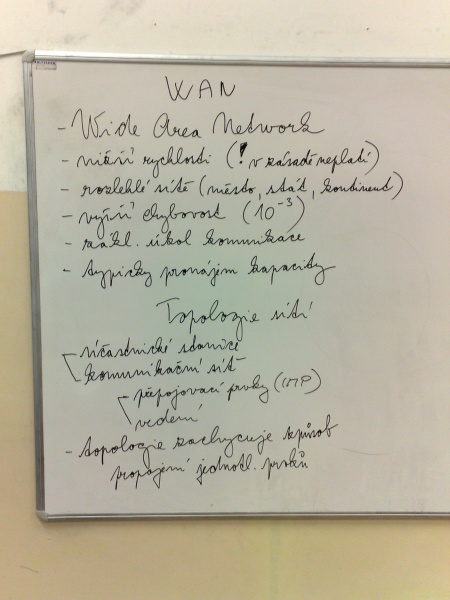 WAN
- Wide Area Network
- nižší rychlosti (! v zásadě neplatí)
- rozlehlé sítě (město, stát, kontinent)
- vyšší chybovost (10⁻³)
- zákl. úkol komunikace
- typicky pronájem kapacity
Topologie sítí
účastnické stanice
komunikační síť
- přepojovací prvky (IMP)
vedení
- topologie zachycuje způsob
propojení jednotl. prvků